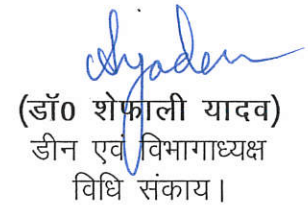 (डॉ0 शेफाली यादव)
डीन एवं विभागाध्यक्ष
विधि संकाय।